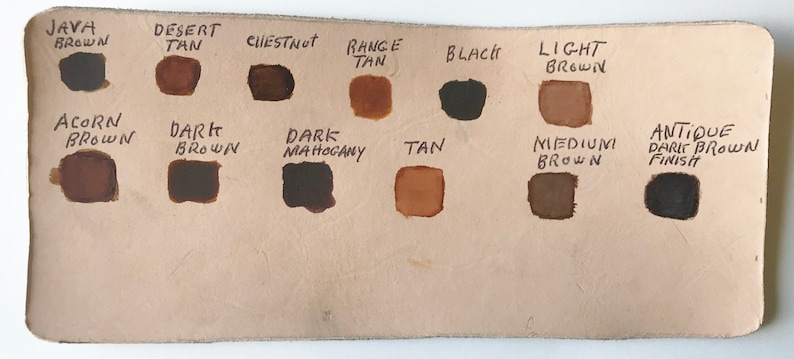 JAVA
BROWN
DESERT
TAN
CHESTNUT
RANGE
TAN
BLACK
LIGHT
BROWN
ACORN
BROWN
DARK
BROWN
DARK
MAHOGANY
TAN
MEDIUM
BROWN
ANTIQUE
DARK BROWN
FINISH